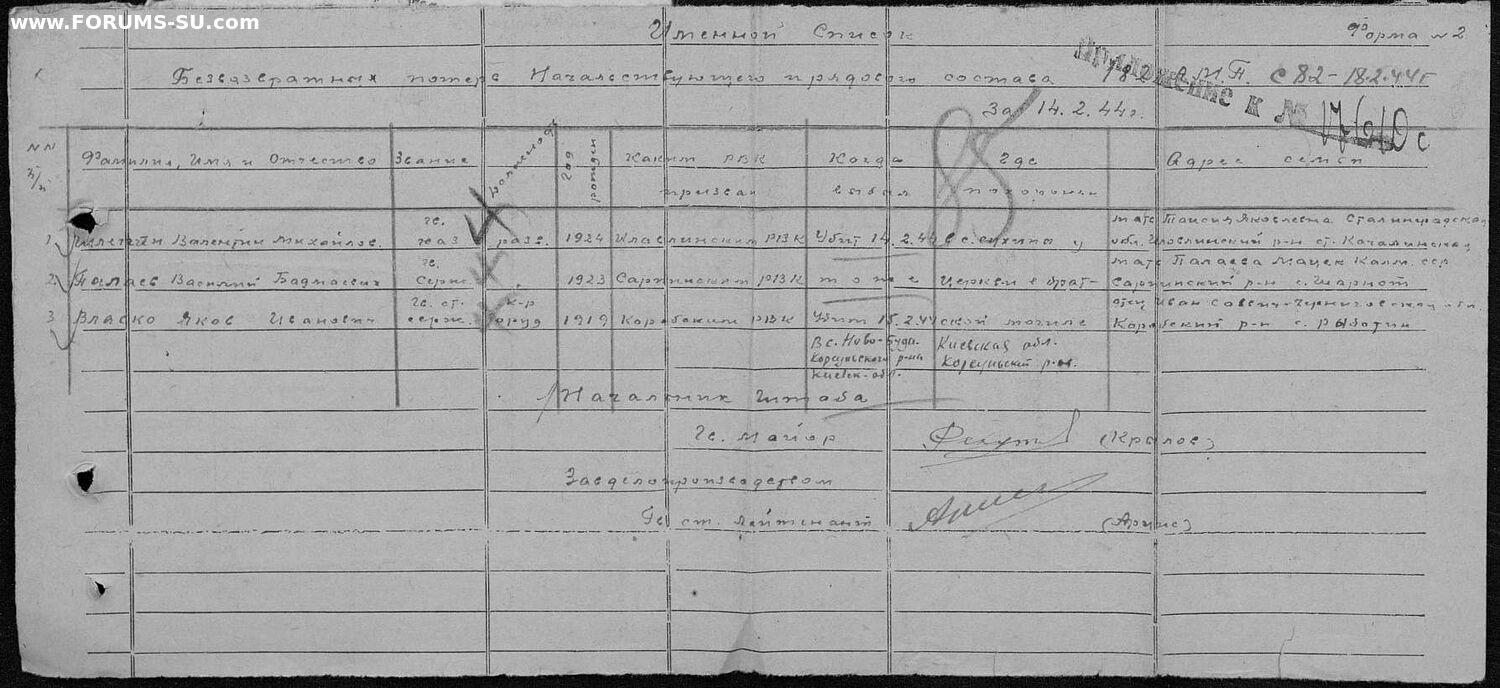 www.FORUMS-SU.com
Именной Список
Форма №2
Безвозвратных потерь Начальствующего и рядового состава 182 с 8.2 - 18.2.44г
Приложение к №
За 14.2.44г.
85
NN п/п Фамилия, Имя и Отчество Звание Должность Год рожден Каким РВК призван Когда выбыл Где похоронен Адрес семьи
1 Валентин Михайлов. гв. разв. 1924 РВК Убит 14.2.44 в с. у мать Таисия Яковлевна Сталинградская обл. Иловлинский р-н ст. Качалинская
2 Палаев Василий Бадмаевич гв. серж. 1923 Сарпинским РВК то же церкви в брат- мать Палаева Калм. сср Сарпинский р-н с.
3 Власко Яков Иванович гв. ст. серж. к-р оруд 1919 Коробским РВК Убит 15.2.44 ской могиле отец Иван Черниговская обл. Коробский р-н с. Рыботин
В с. Ново-Буда Корсуньского р-на Киевск-обл.
Киевская обл. Корсуньский р-он.
Начальник штаба
Гв. майор (Кралов)
Завделопроизводством
Гв ст. лейтенант